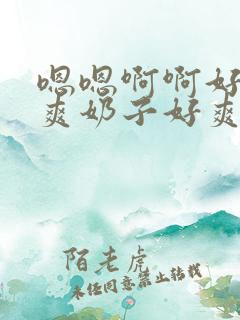 嗯嗯啊啊好
爽奶子好爽
陌老虎
未经同意禁止转载